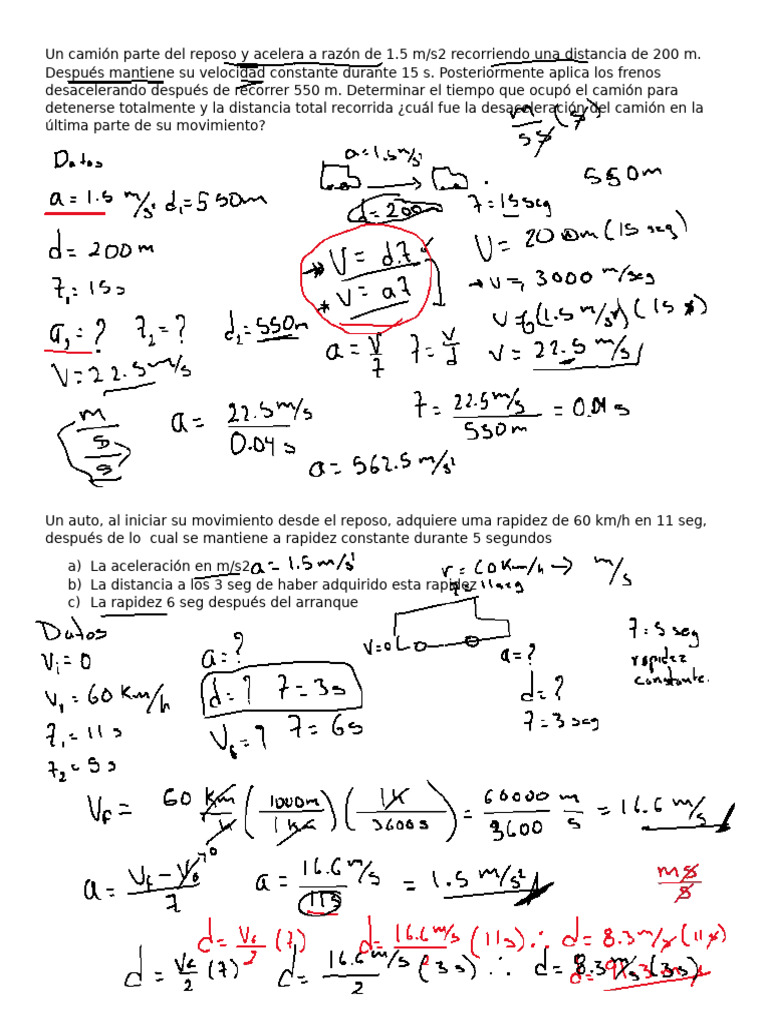 Un camión parte del reposo y acelera a razón de 1.5 m/s2 recorriendo una distancia de 200 m.
Después mantiene su velocidad constante durante 15 s. Posteriormente aplica los frenos
desacelerando después de recorrer 550 m. Determinar el tiempo que ocupó el camión para
detenerse totalmente y la distancia total recorrida ¿cuál fue la desaceleración del camión en la
última parte de su movimiento?
m/s s (s)
Datos
a=1.5 m/s²
a=1.5 m/s² d₁=550m
d=200m
7=15seg
550m
d=200m
V= d.7
V= 200m(15 seg)
7₁=15s
v= a7
v= 3000 m/seg
a₂=? 7₂=? d₂=550m
v= (1.5 m/s²)(15 s)
V=22.5 m/s
a= V/7 7= V/d
v= 22.5 m/s
m/s/s
a= 22.5 m/s / 0.04 s
7= 22.5 m/s / 550m = 0.04 s
a=562.5 m/s²
Un auto, al iniciar su movimiento desde el reposo, adquiere uma rapidez de 60 km/h en 11 seg,
después de lo cual se mantiene a rapidez constante durante 5 segundos
a) La aceleración en m/s2 a=1.5 m/s²
r=60 Km/h → m/s
b) La distancia a los 3 seg de haber adquirido esta rapidez 7=11seg
c) La rapidez 6 seg después del arranque
Datos
Vi=0
a=?
V=0
a=?
7=5 seg
rapidez
constante.
Vf=60 Km/h
d=? 7=3s
d=?
7₁=11s
Vf=? 7=6s
7=3seg
7₂=5s
Vf= 60 Km/h (1000m/1Km)(1h/3600s) = 60000 m/3600 s = 16.6 m/s
a= Vf-V₀/7 0
a= 16.6 m/s / 11s = 1.5 m/s²
ms/s
d= Vf/2 (7) d= 16.6 m/s / 2 (11s) ∴ d= 8.3 m/s (11s)
d= Vf/2 (7) d= 16.6 m/s / 2 (3s) ∴ d= 8.3 m/s (3s)